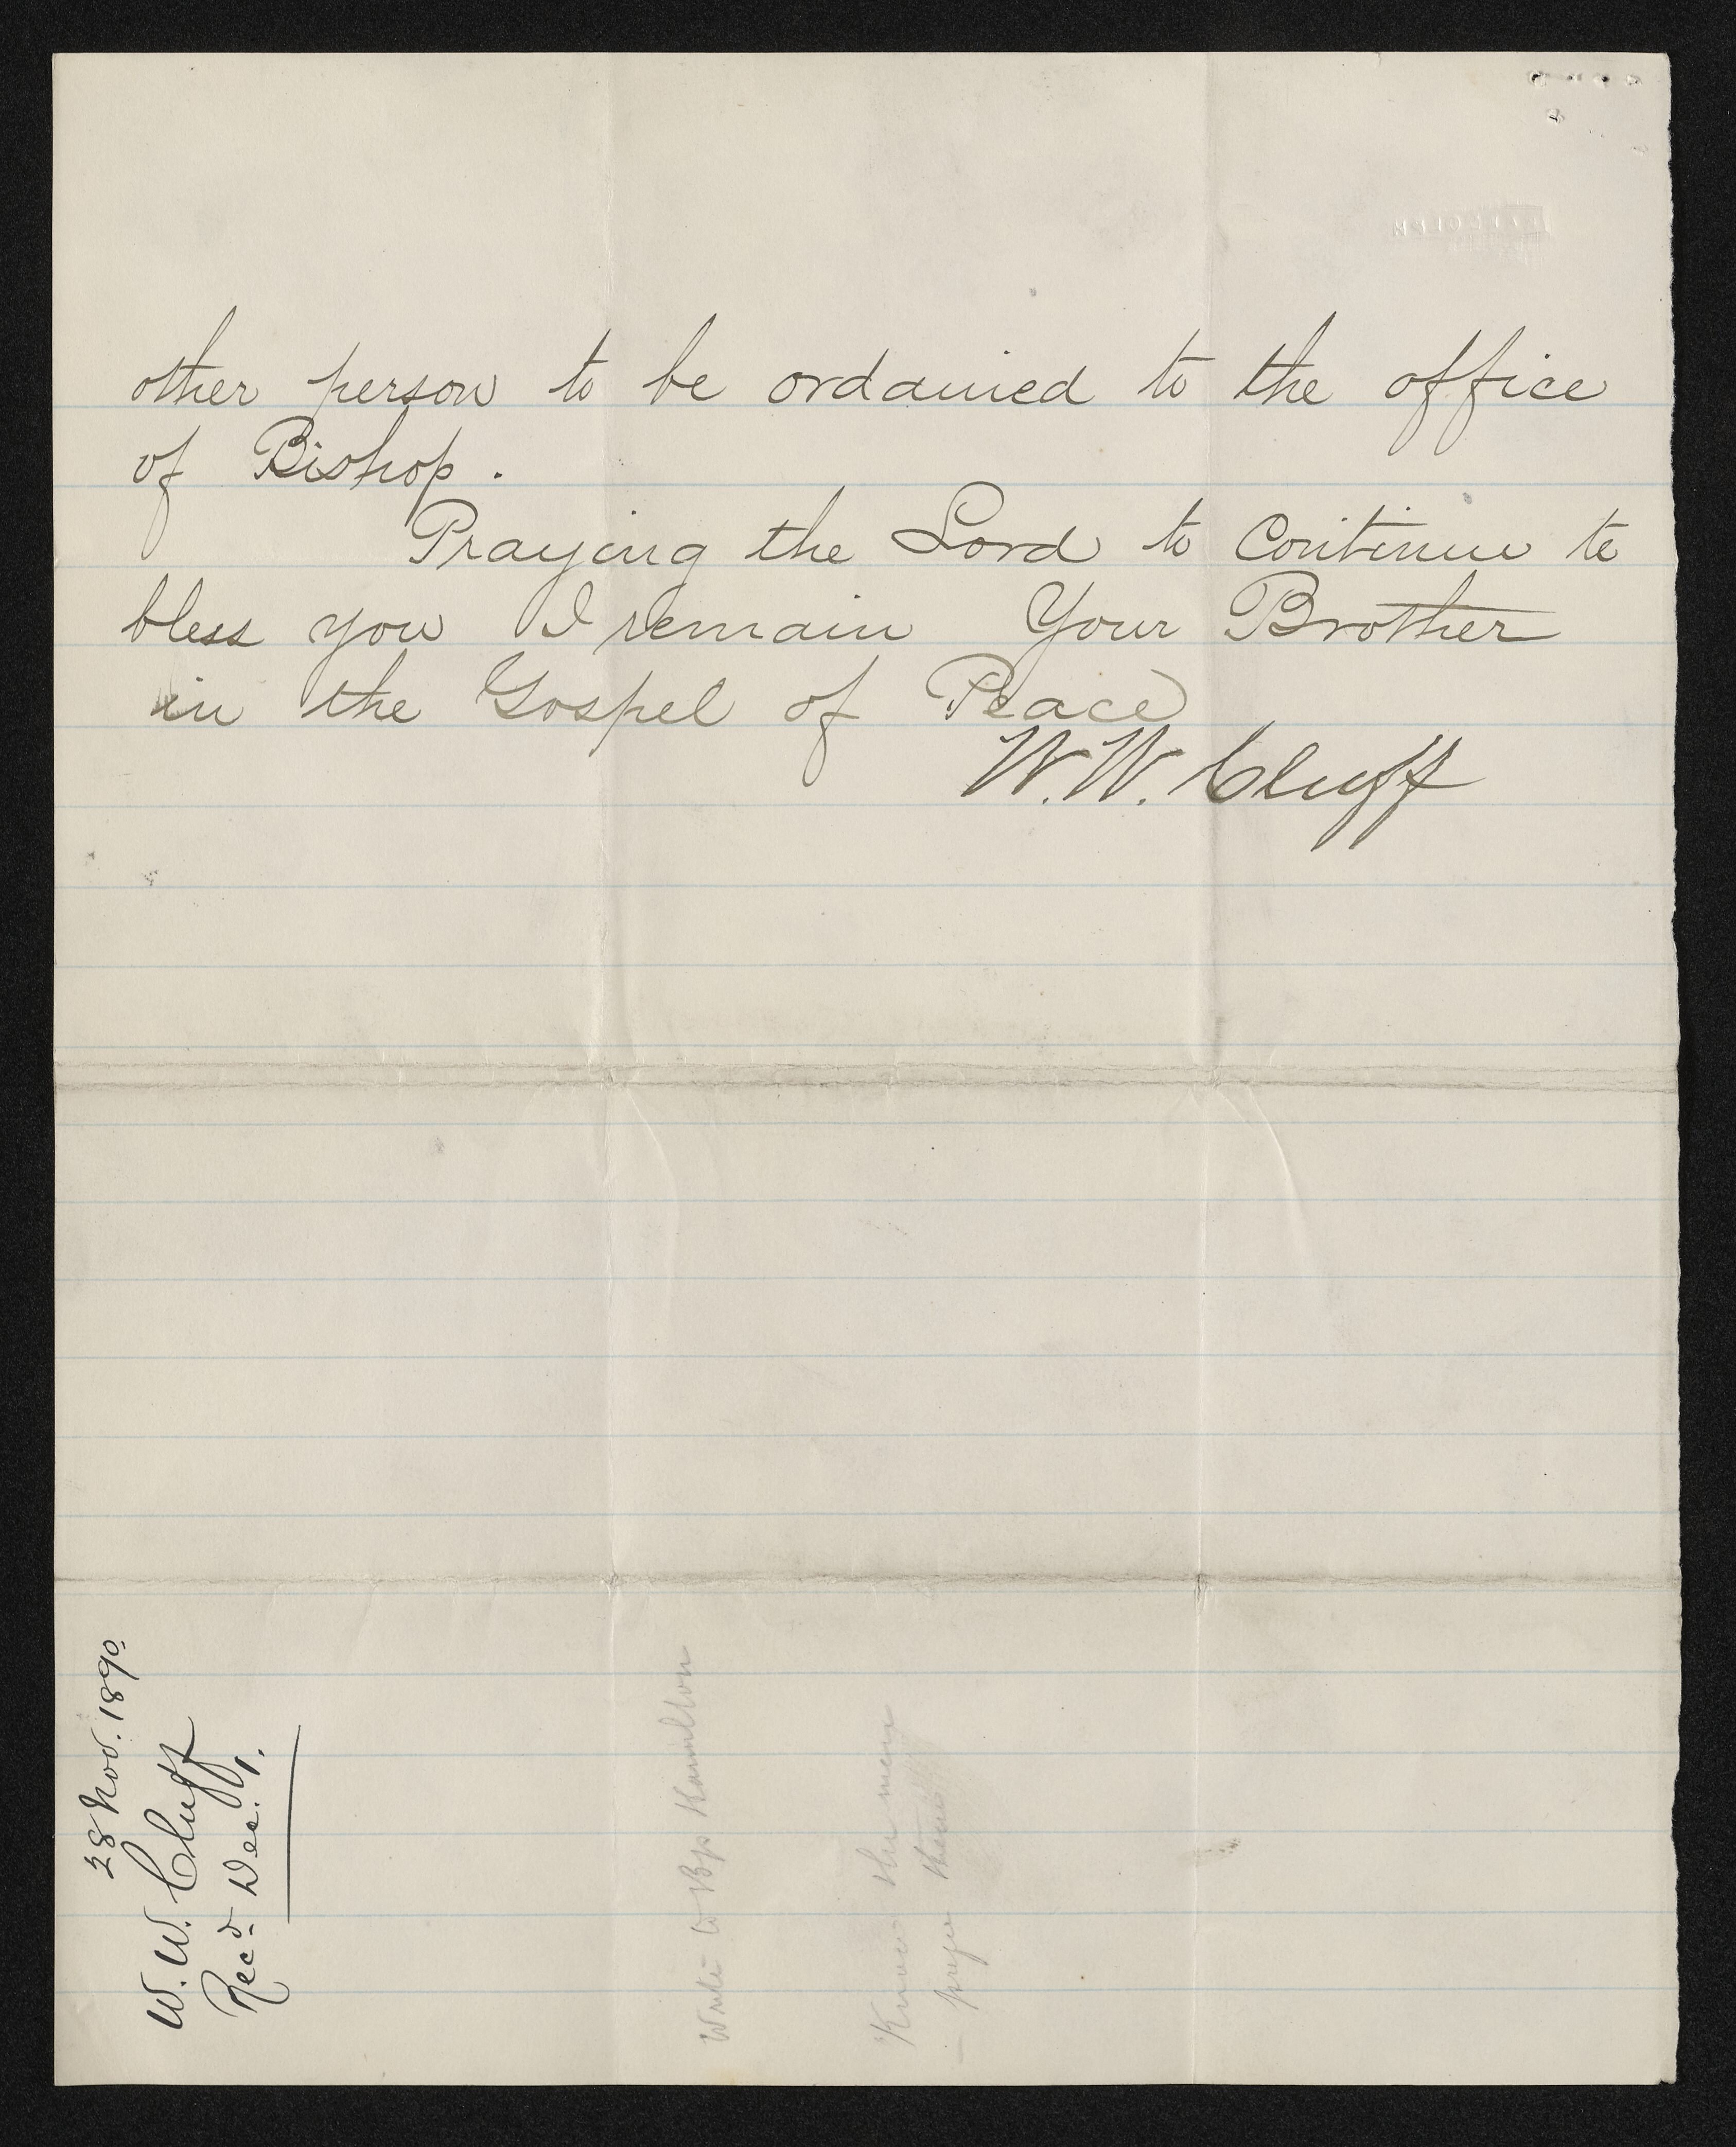 other person to be ordained to the office
of Bishop.
Praying the Lord to continue to
bless you I remain Your Brother
in the Gospel of Peace
W. W. Cluff
28 Nov. 1890.
W. W. Cluff
Recd Dec. 1.
Write to Bp Hamilton
the men